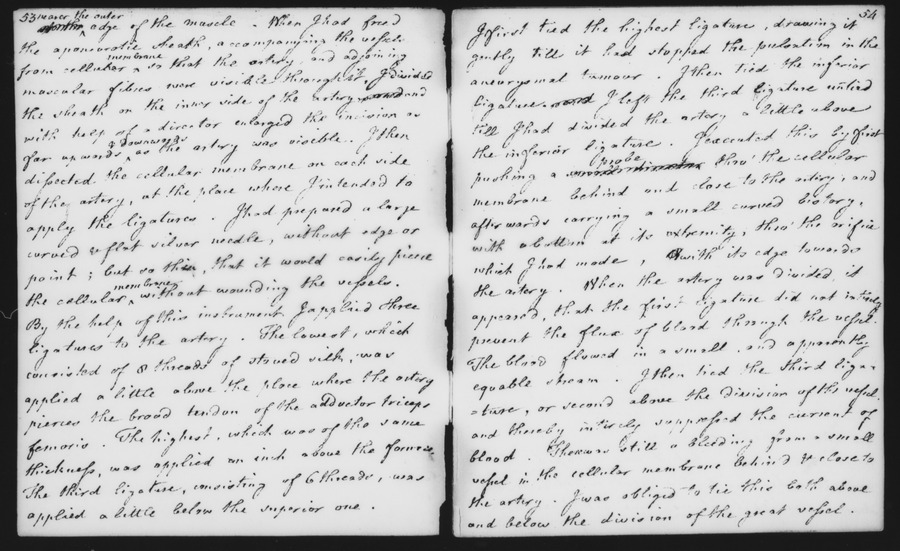 53 nearer the outer
edge of the muscle. When I had freed
the aponeurotic sheath, accompanying the vessels
from cellular membrane, so that the artery, and adjoining
muscular fibres were visible through it, I divided
the sheath on the inner side of the artery and
with help of a director enlarged the incision as
far upwards & downwards as the artery was visible. I then
dissected the cellular membrane on each side
of the artery, at the place where I intended to
apply the ligatures. I had prepared a large
curved & flat silver needle, without edge or
point; but so thin, that it would easily pierce
the cellular membrane, without wounding the vessels.
By the help of this instrument I applied three
ligatures to the artery. The lowest, which
consisted of 8 threads of strued silk, was
applied a little above the place where the artery
pierces the broad tendon of the adductor triceps
femoris. The highest, which was of the same
thickness, was applied an inch above the former.
The third ligature, consisting of 6 threads, was
applied a little below the superior one.
54
I first tied the highest ligature, drawing it
gently till it had stopped the pulsation in the
aneurysmal tumour. I then tied the inferior
ligature. I left the third ligature untied
till I had divided the artery a little above
the inferior ligature. I executed this by first
pushing a probe thro' the cellular
membrane behind and close to the artery, and
afterwards carrying a small curved bistory,
with a button at its extremity, thro' the orifice
which I had made, with its edge towards
the artery. When the artery was divided, it
appeared, that the first ligature did not intirely
prevent the flux of blood through the vessel.
The blood flowed in a small, and apparently
equable stream. I then tied the third liga-
-ture, or second above the division of the vessel.
and thereby intirely suppressed the current of
blood. There was still a bleeding from a small
vessel in the cellular membrane behind & close to
the artery. I was obliged to tie this both above
and below the division of the great vessel.